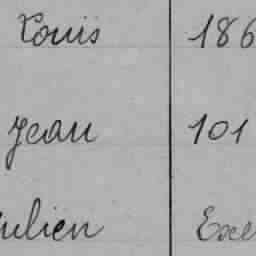 Louis 186
Jean 101
ulien Exe